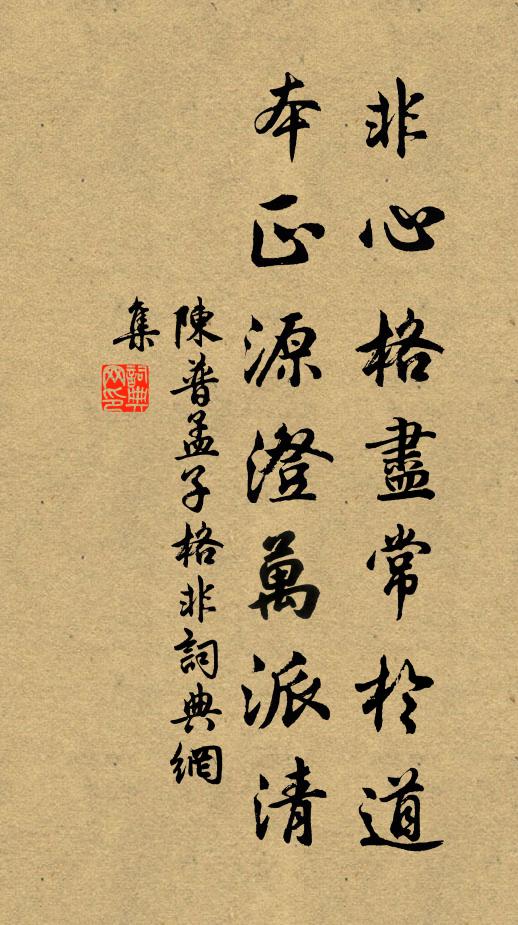 非心格盡常於道
本正源澄萬派清
陳普孟子格非詞典網
集
詞典網印